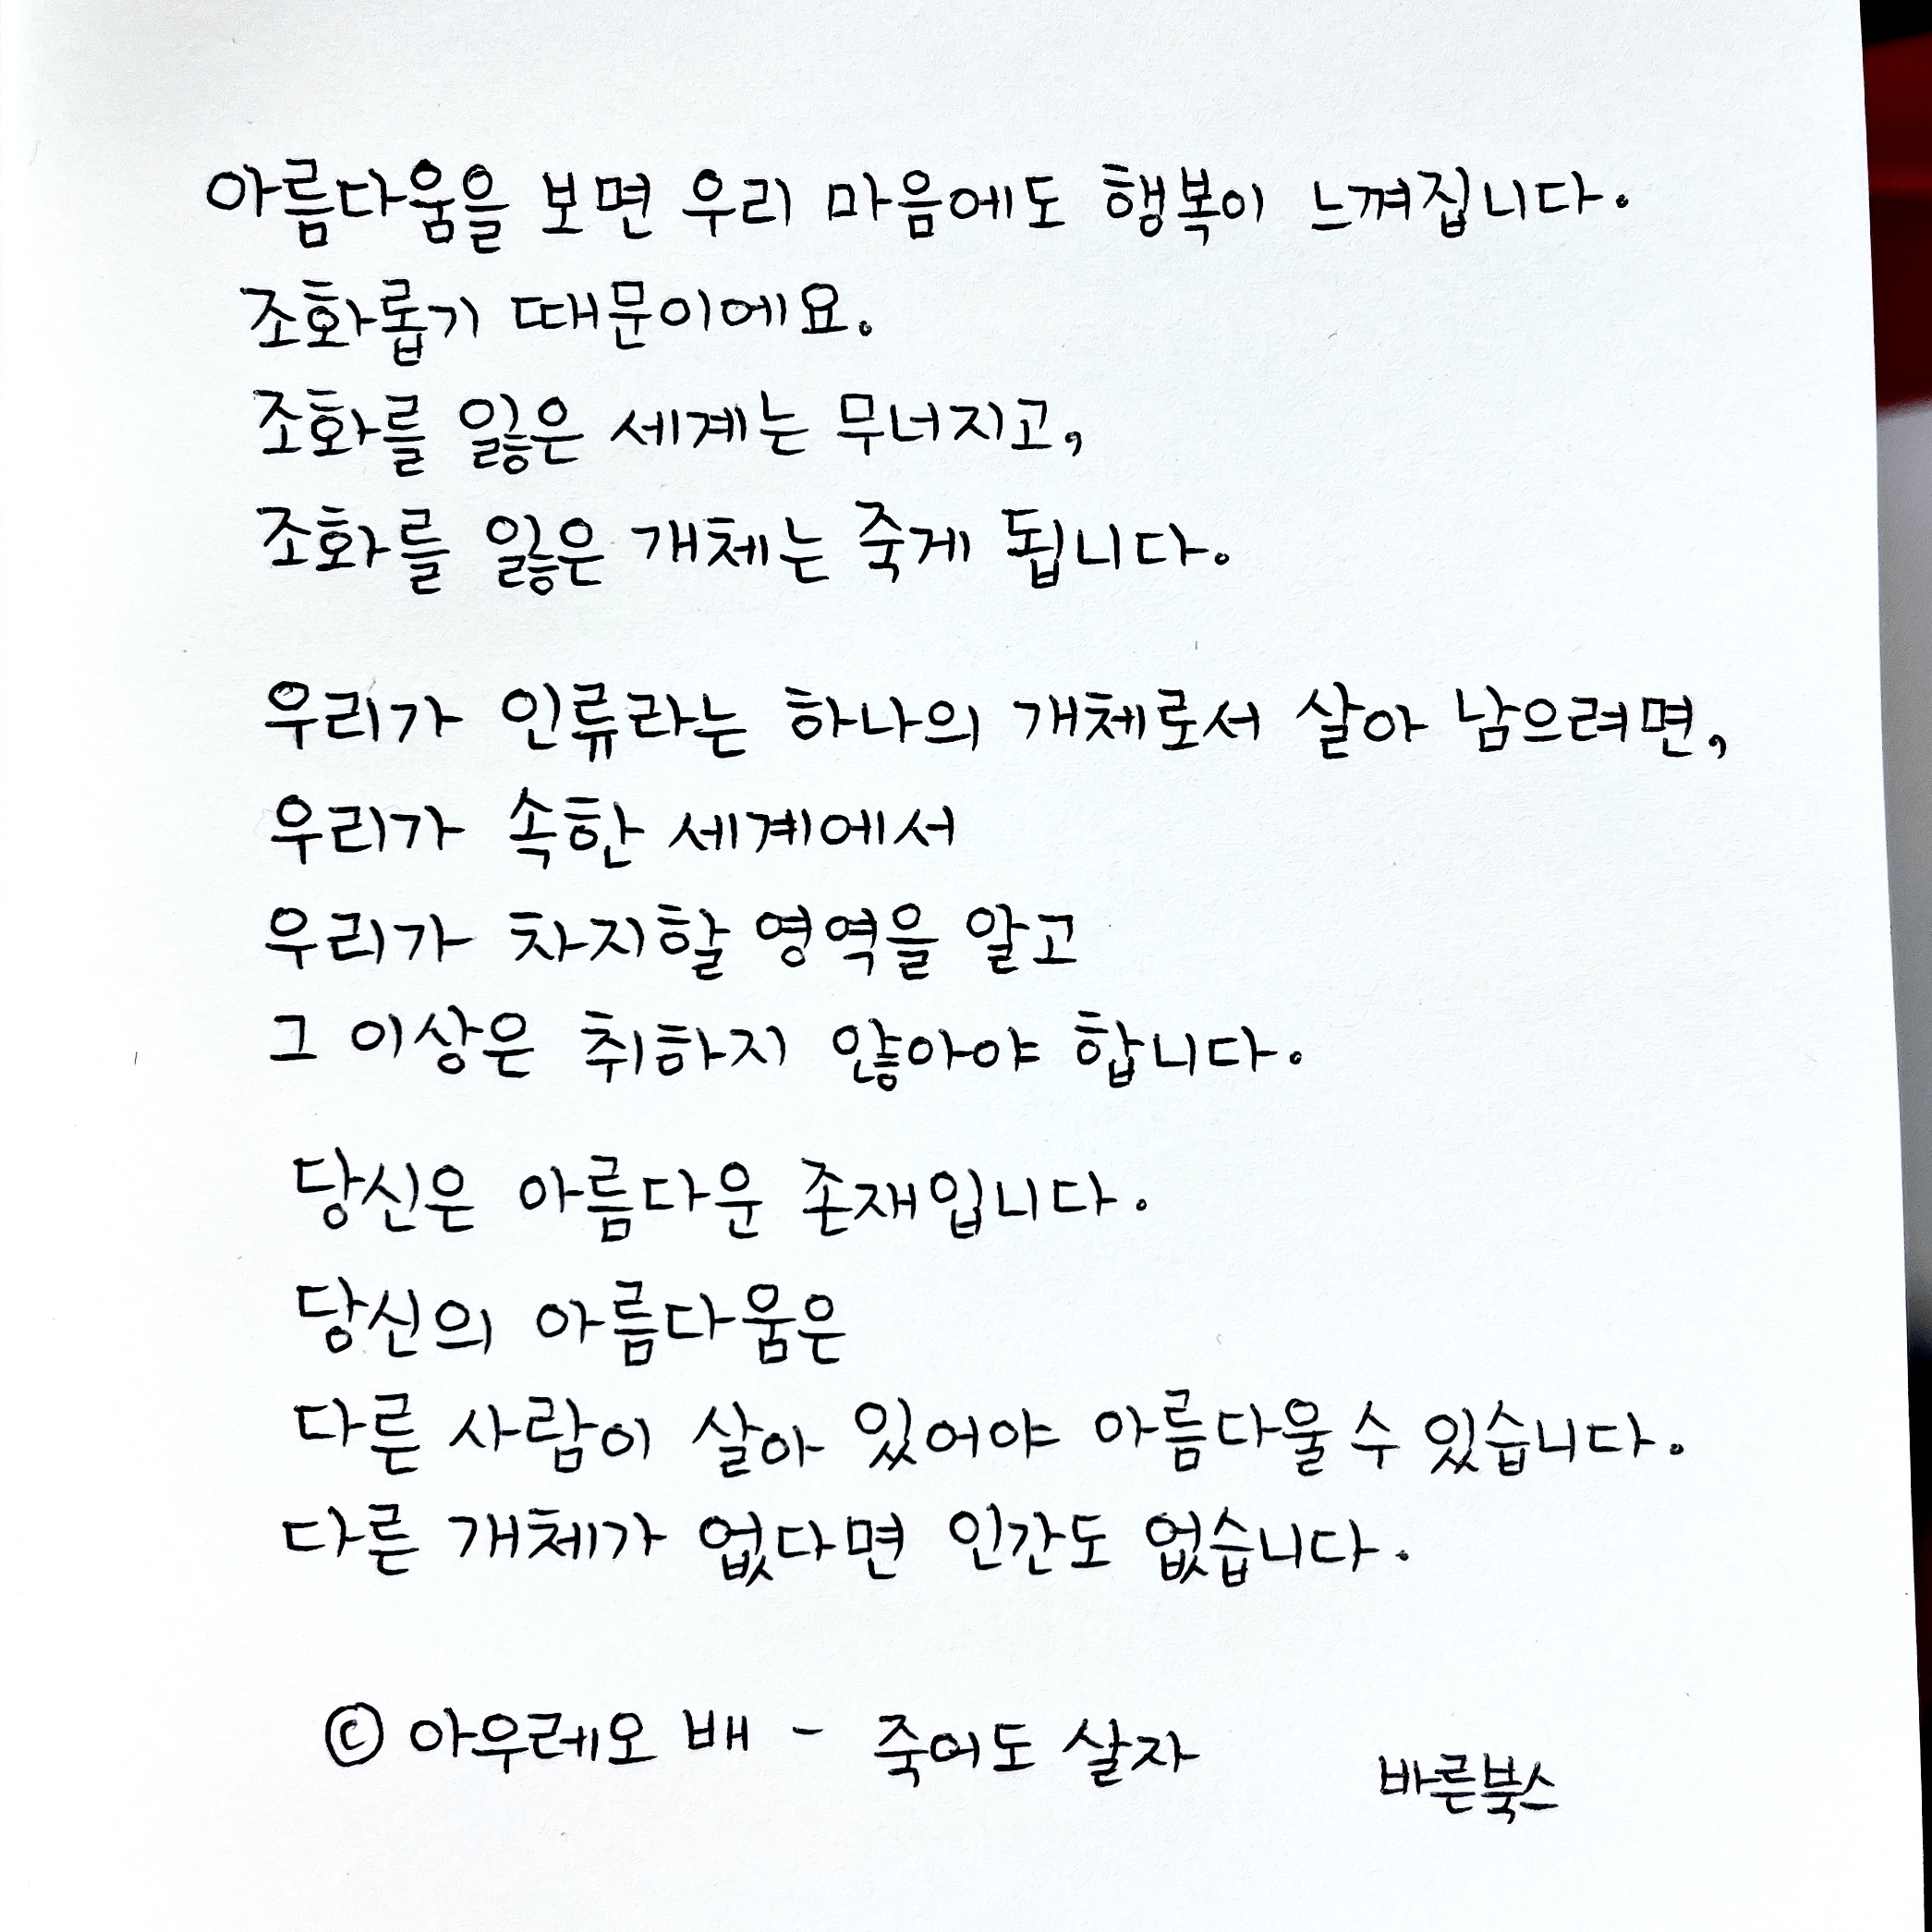 아름다움을 보면 우리 마음에도 행복이 느껴집니다.
조화롭기 때문이에요.
조화를 잃은 세계는 무너지고,
조화를 잃은 개체는 죽게 됩니다.
우리가 인류라는 하나의 개체로서 살아 남으려면,
우리가 속한 세계에서
우리가 차지할 영역을 알고
그 이상은 취하지 않아야 합니다.
당신은 아름다운 존재입니다.
당신의 아름다움은
다른 사람이 살아 있어야 아름다울 수 있습니다.
다른 개체가 없다면 인간도 없습니다.
© 아우레오 배 - 죽어도 살자
바른북스